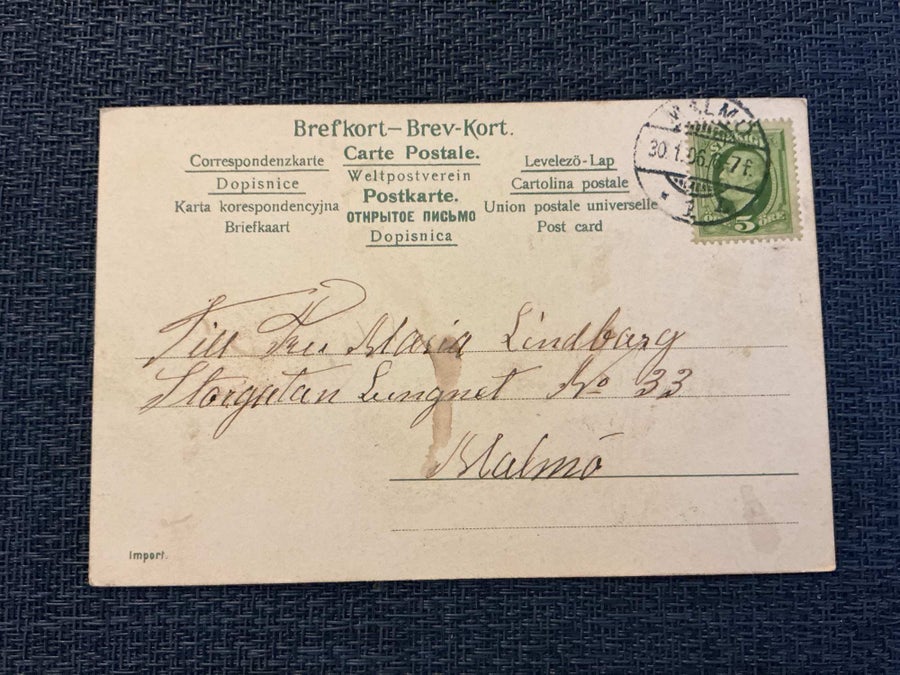 Brefkort–Brev-Kort.
Correspondenzkarte Carte Postale. Levelezö-Lap
Dopisnice Weltpostverein Cartolina postale
Karta korespondencyjna Postkarte. Union postale universelle
Briefkaart ОТКРЫТОЕ ПИСЬМО Post card
Dopisnica
MALMÖ
30.1.06.
5 ÖRE
Till Fru Maria Lindbarg
Storgatan Lungnet No 33
Malmö
Import.